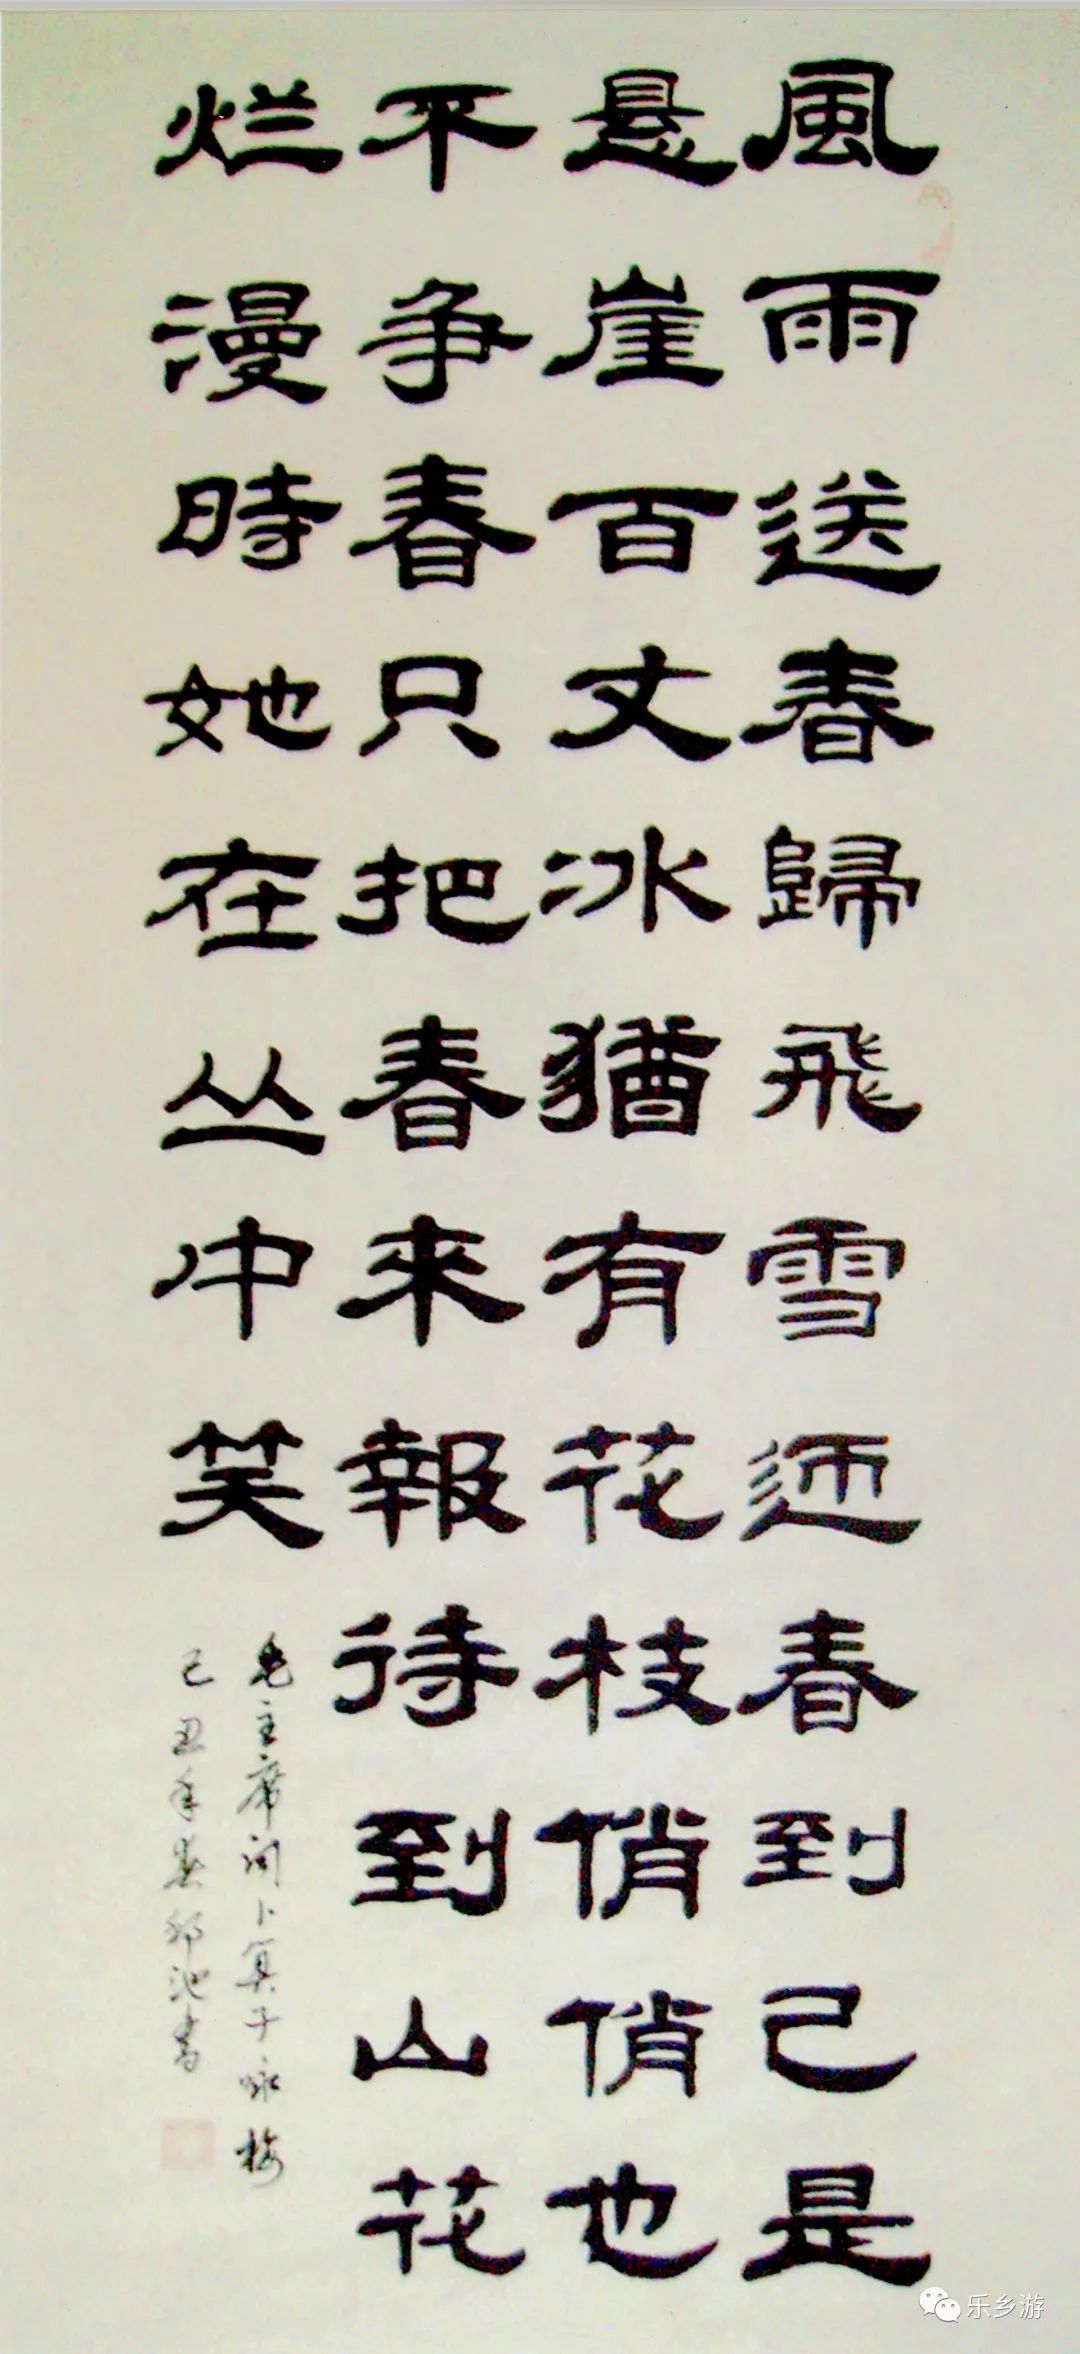 風雨送春歸飛雪迊春到己是
悬崖百丈冰猶有花枝俏俏也
不争春只把春來報待到山花
烂漫時她在丛中笑
毛主席词卜算子咏梅
己丑年春池书
乐乡游